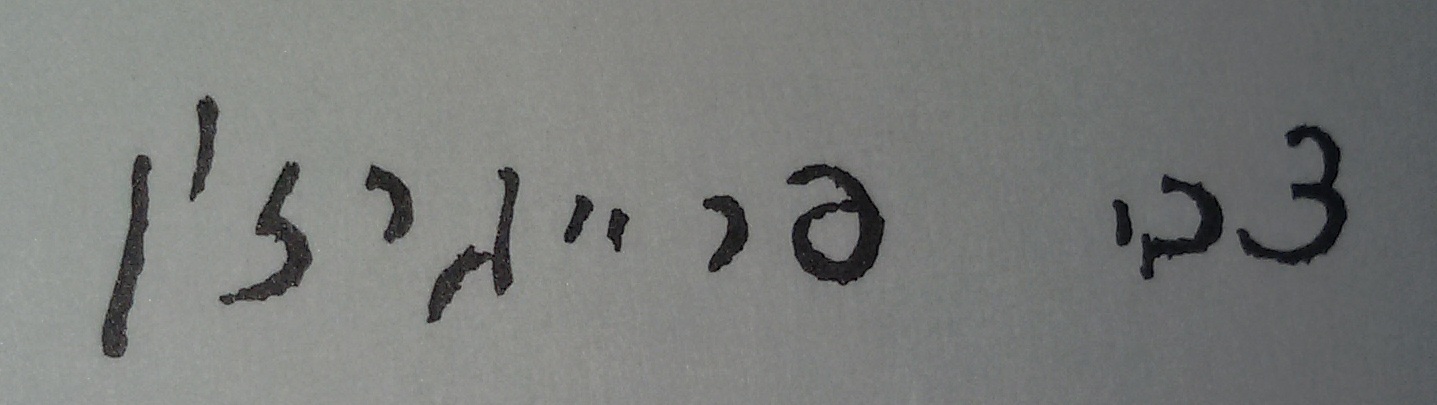 צבי פרייגרזון